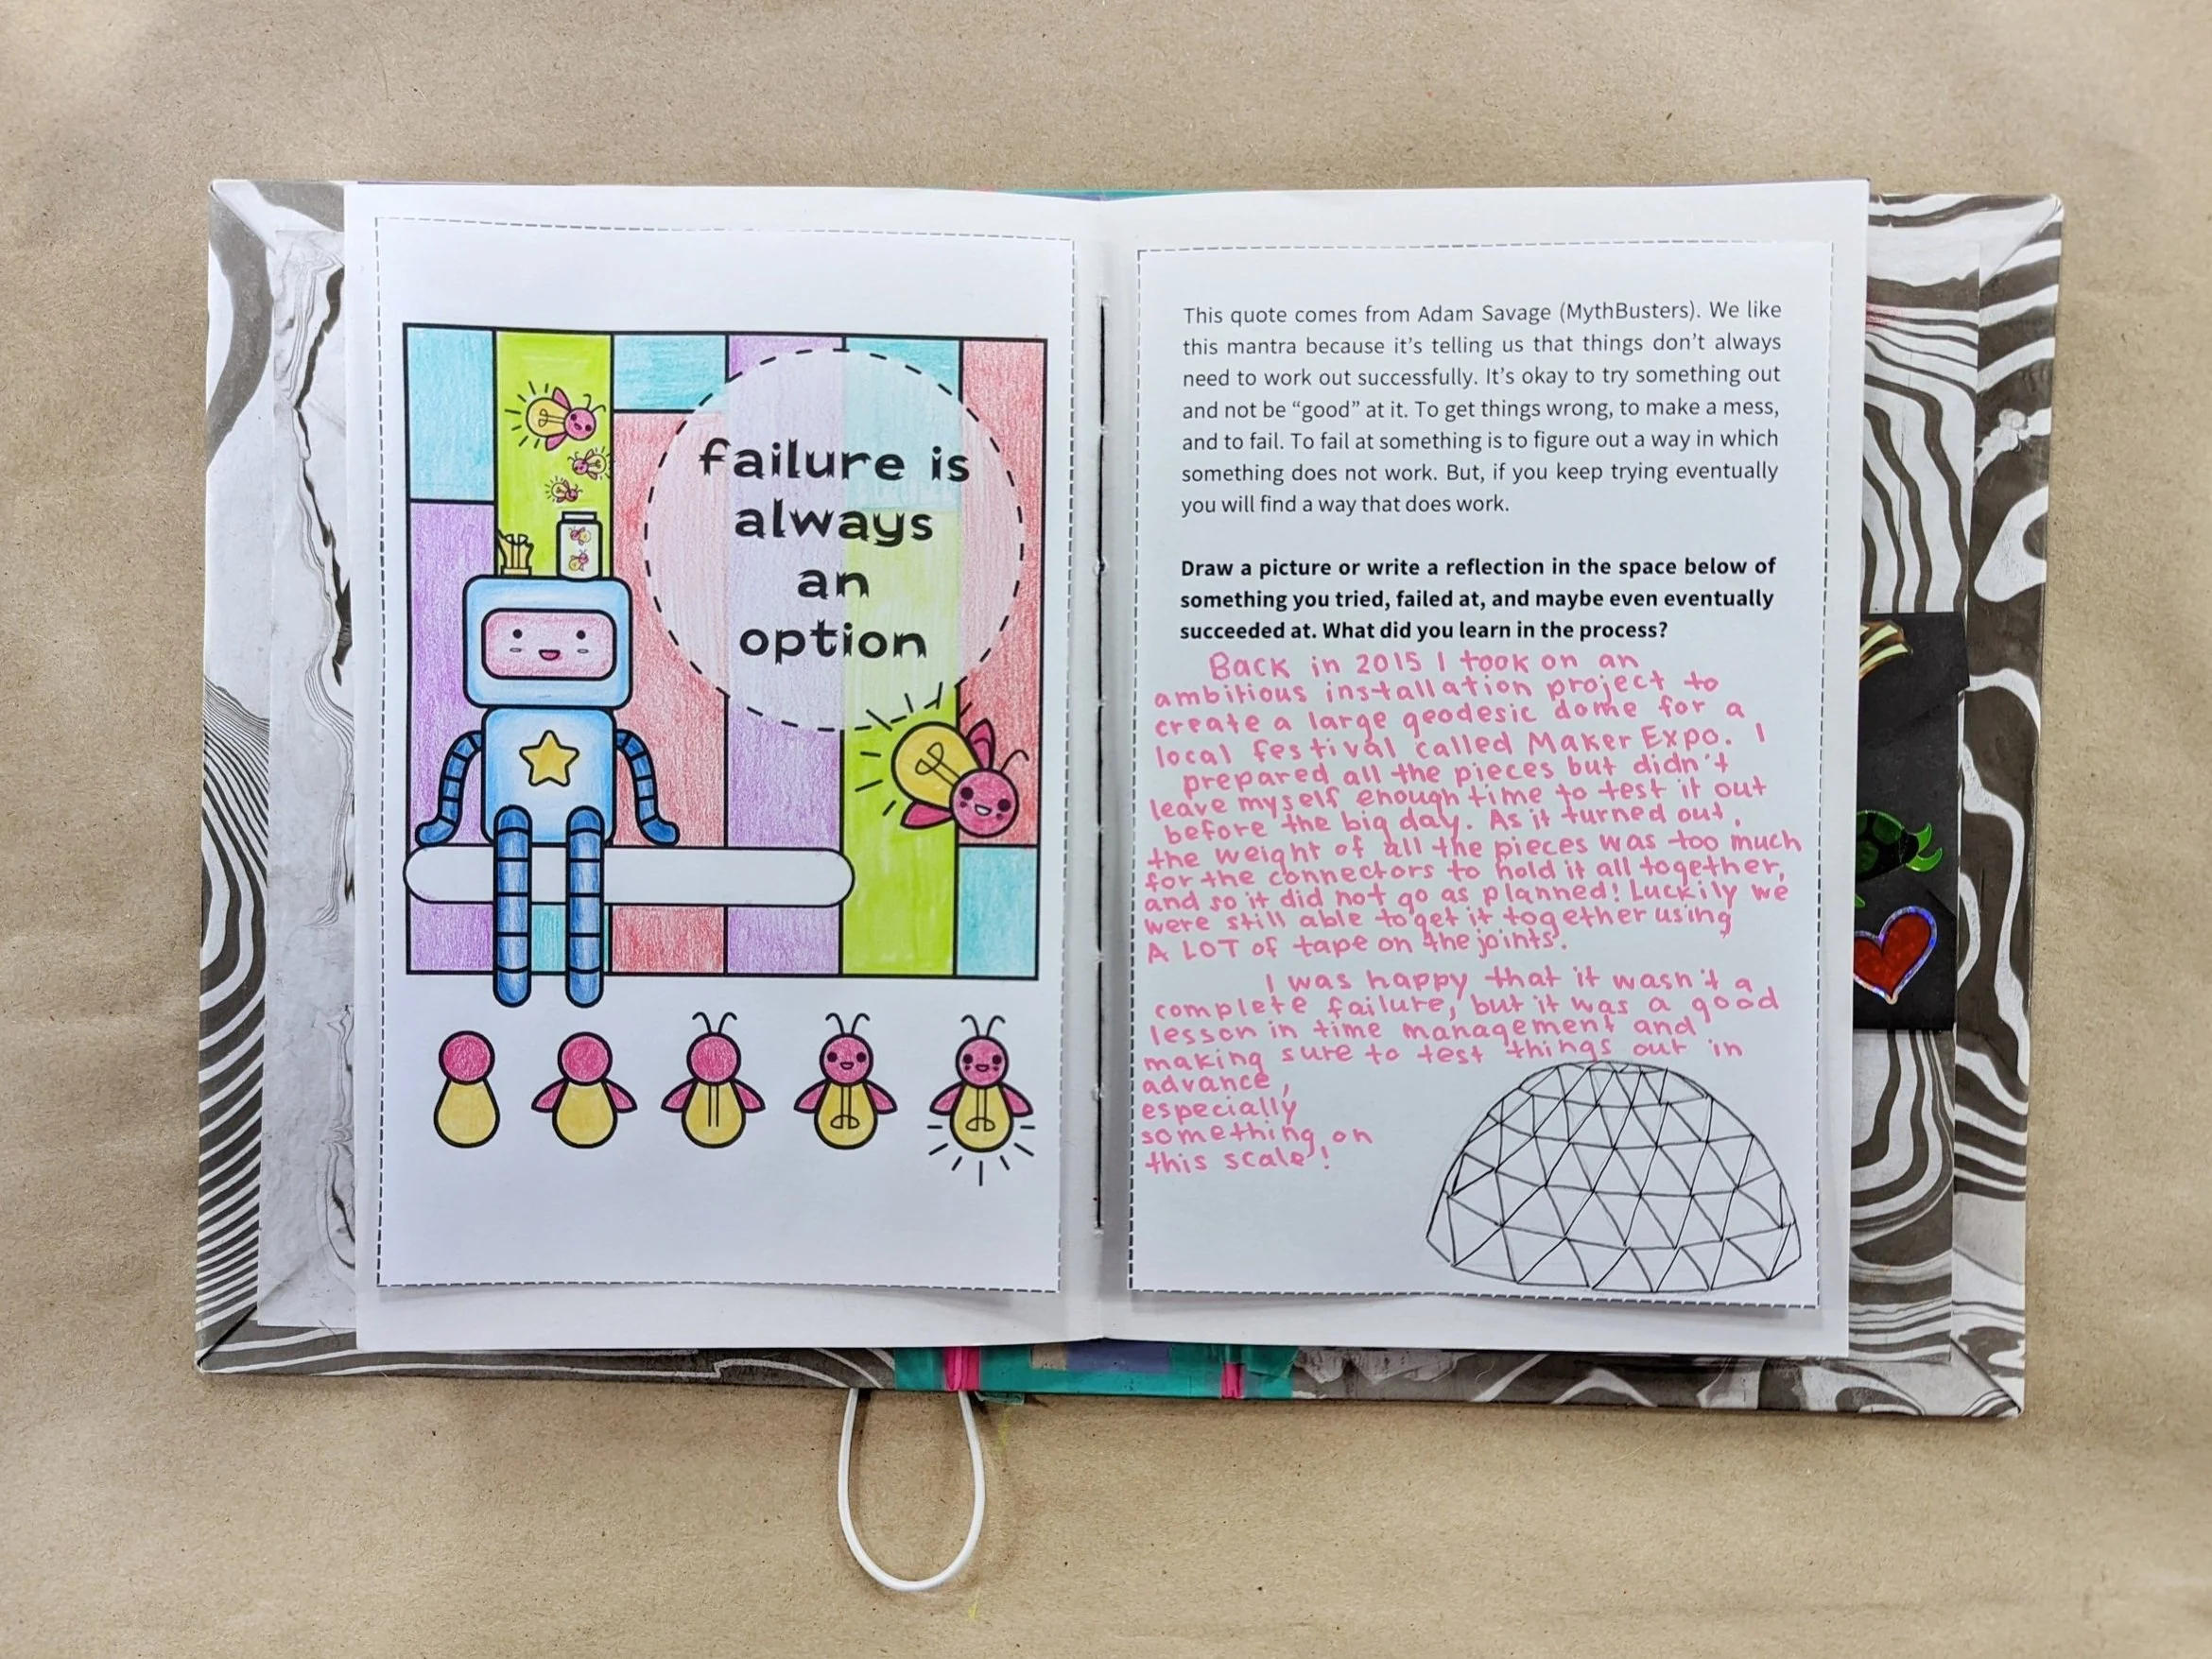 failure is
always
an
option
This quote comes from Adam Savage (MythBusters). We like
this mantra because it's telling us that things don't always
need to work out successfully. It's okay to try something out
and not be “good” at it. To get things wrong, to make a mess,
and to fail. To fail at something is to figure out a way in which
something does not work. But, if you keep trying eventually
you will find a way that does work.
Draw a picture or write a reflection in the space below of
something you tried, failed at, and maybe even eventually
succeeded at. What did you learn in the process?
Back in 2015 I took on an
ambitious installation project to
create a large geodesic dome for a
local festival called Maker Expo. I
prepared all the pieces but didn't
leave myself enough time to test it out
before the big day. As it turned out,
the weight of all the pieces was too much
for the connectors to hold it all together,
and so it did not go as planned! Luckily we
were still able to get it together using
A LOT of tape on the joints.
I was happy that it wasn't a
complete failure, but it was a good
lesson in time management and
making sure to test things out in
advance,
especially
something on
this scale!